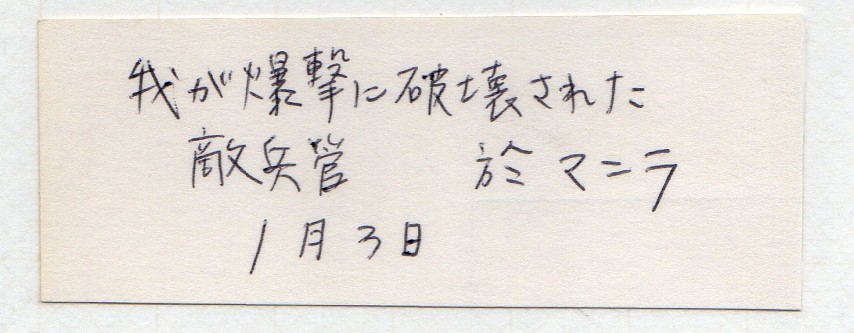 我が爆撃に破壊された
敵兵営 於マニラ
1月3日